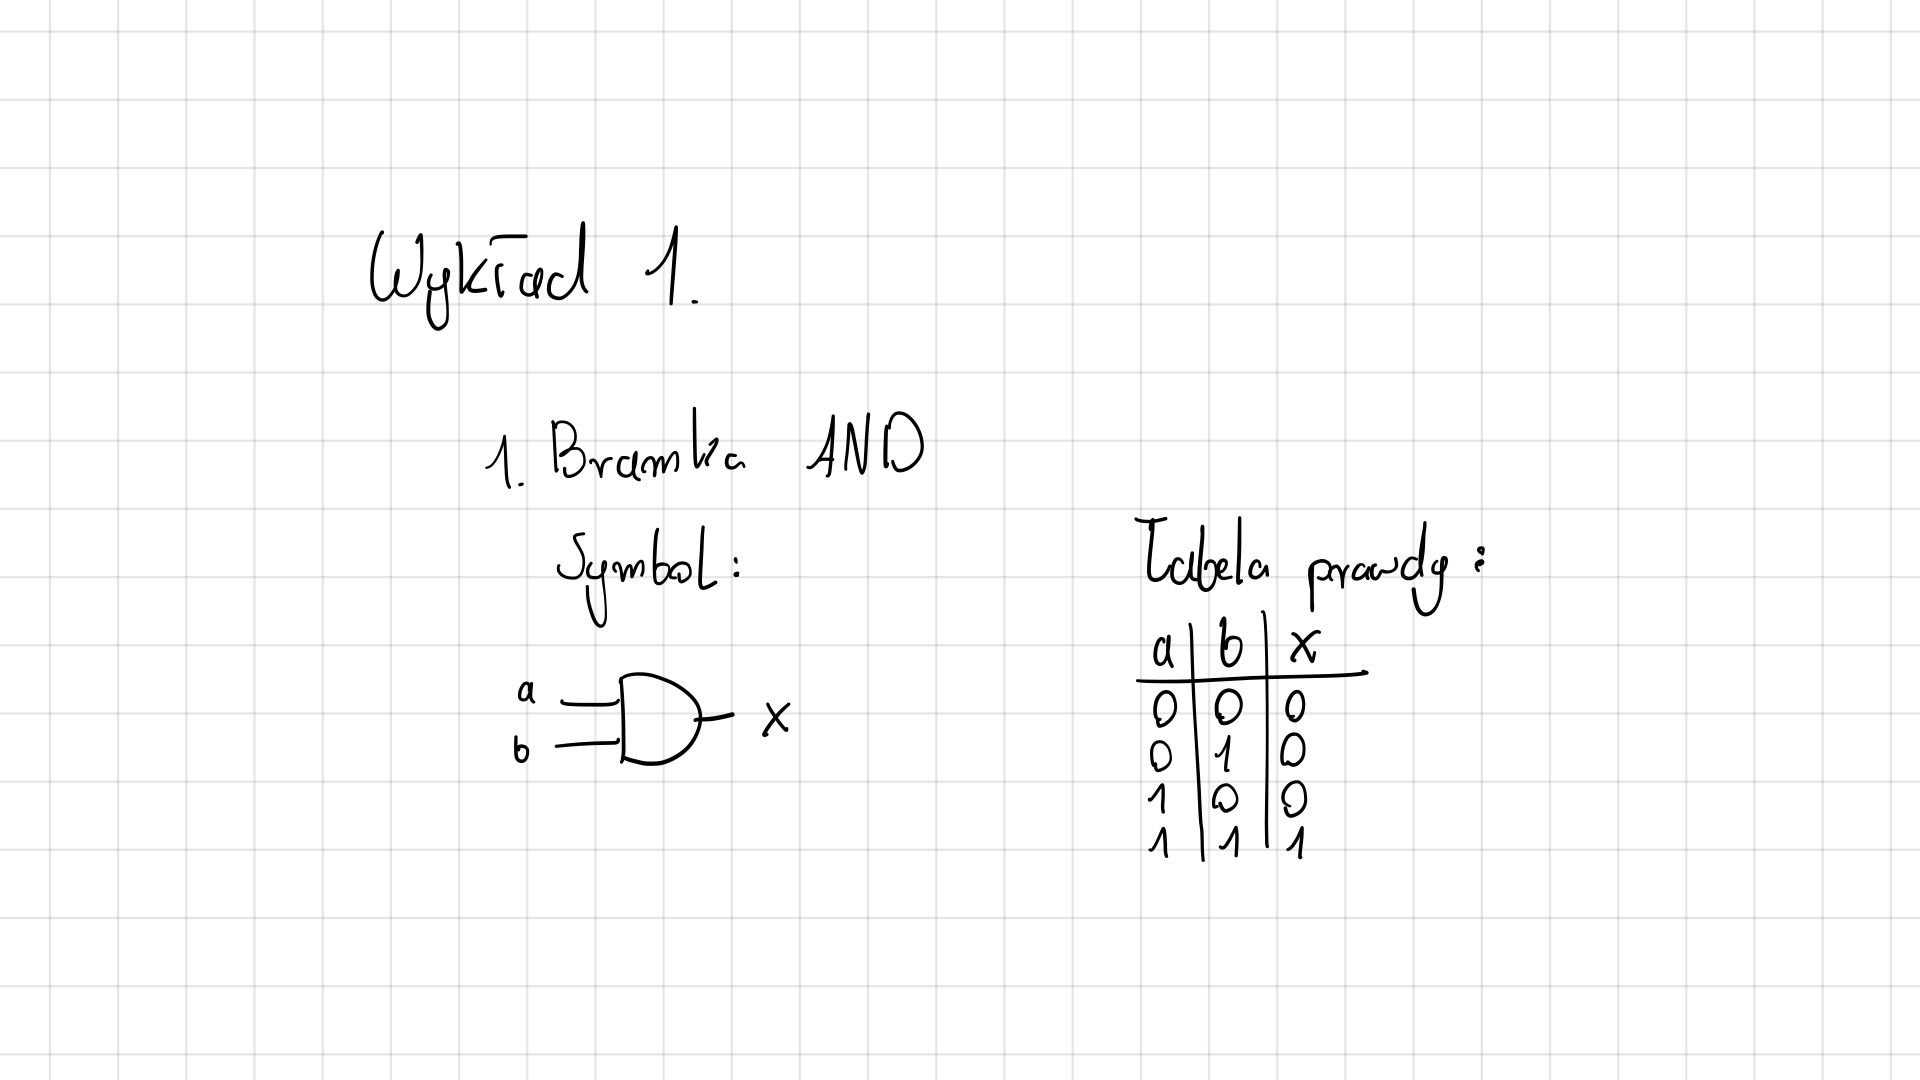 Wykład 1.
1. Bramka AND
Symbol:
a
b
x
Tabela prawdy:
a b x
0 0 0
0 1 0
1 0 0
1 1 1